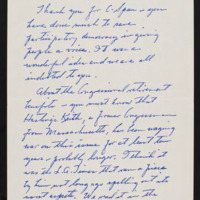 Thank you for C-Span - you
have done much to save
participatory democracy in giving
people a voice. It was a
wonderful idea and we are all
indebted to you.
About the Congressional retirement
benefits - you must know that
Hastings Keith, a former Congressman
from Massachusetts, has been nagging
me on this issue for at least ten
years - probably longer. I think it
was the L.A. Times that ran a piece
by him not long ago spelling it all
out again. We met in the